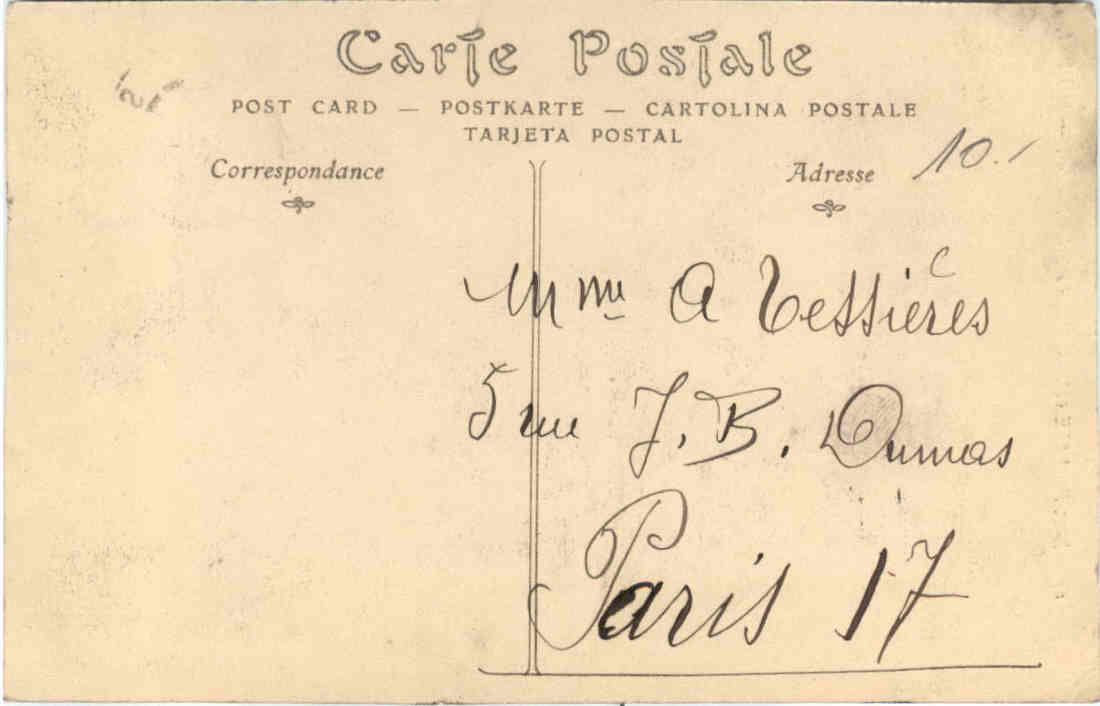 Carte Postale
POST CARD — POSTKARTE — CARTOLINA POSTALE
TARJETA POSTAL
Correspondance
Adresse
10.-
Mme A Tessières
5 rue J. B. Dumas
Paris 17